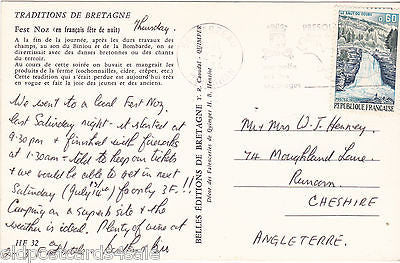 TRADITIONS DE BRETAGNE
Fest Noz (en français fête de nuit) Thursday.
A la fin de la journée, après les durs travaux des
champs, au son du Biniou et de la Bombarde, on se
divertissait avec les danses bretonnes en sabots
traditionnels.
Au cours de cette soirée on buvait et mangeait les
produits de la ferme (cochonnailles, cidre, crêpes, etc.)
Cette tradition qui s'était perdue est aujourd'hui en
vogue et fait la joie des jeunes et des anciens.
We went to a local Fest Noz
last Saturday night - it started at
9.30pm & finished with fireworks
at 1.30am - told to keep our tickets
& we would be able to get in next
Saturday (July 14th) for only 3F.!!
Camping on a superb site & the
weather is ideal. Plenty of wine at
HF 32
BELLES ÉDITIONS DE BRETAGNE
LE SAUT DU DOUBS
0,60
REPUBLIQUE FRANÇAISE
Mr & Mrs W. J. Henney
74 Moughland Lane
Runcorn
CHESHIRE
ANGLETERRE.
oldpostcards4sale